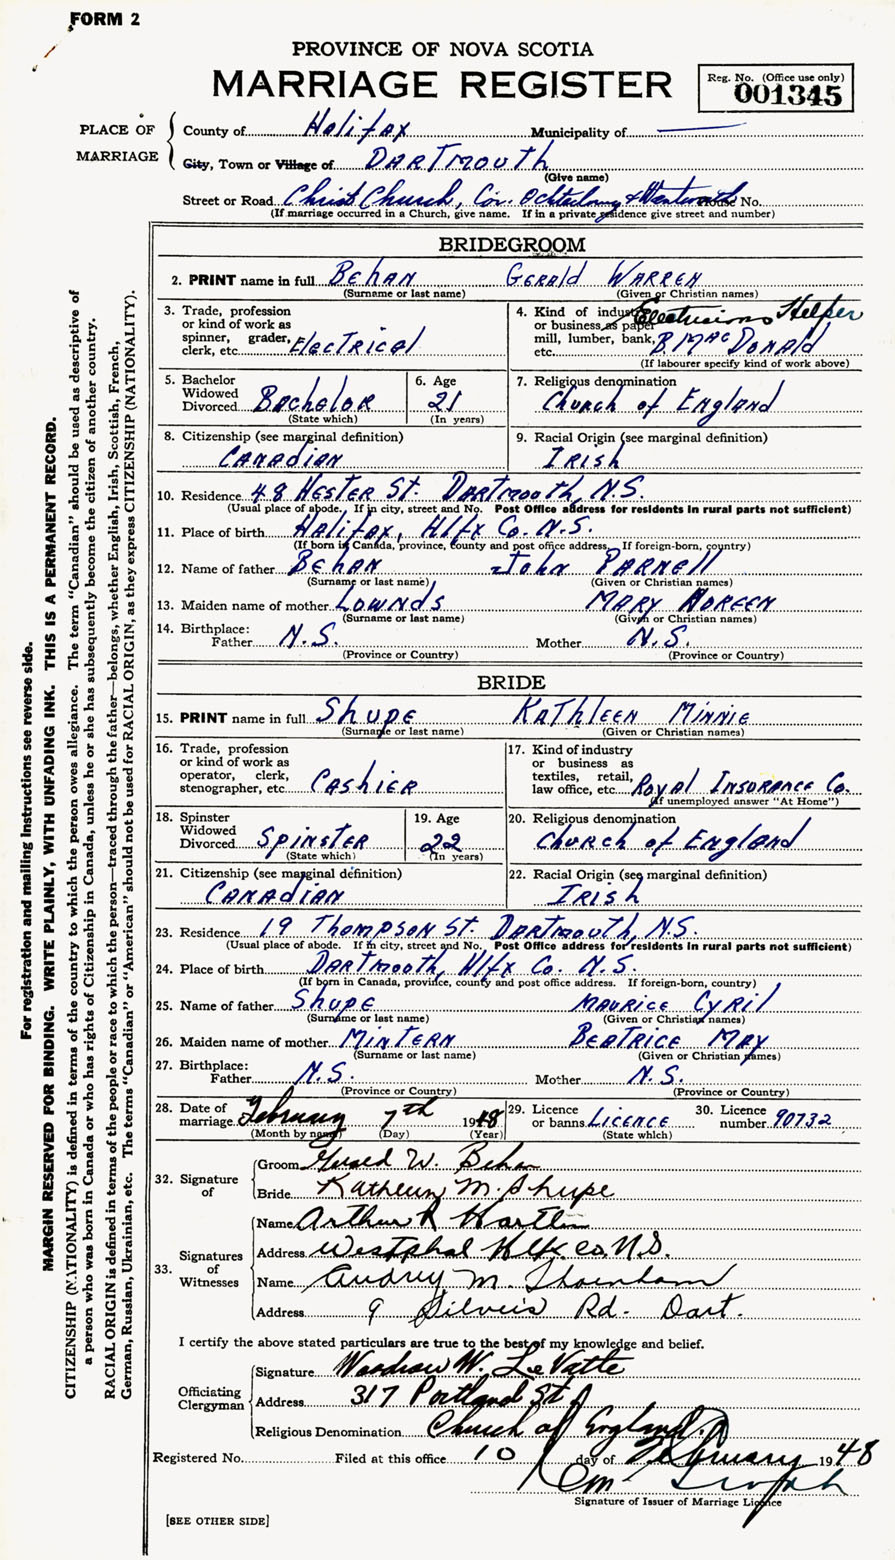 FORM 2
PROVINCE OF NOVA SCOTIA
MARRIAGE REGISTER
Reg. No. (Office use only)
001345
PLACE OF MARRIAGE
County of Halifax Municipality of
City, Town or Village of DARTMOUTH
(Give name)
Street or Road Christ Church, Cor. Ochterloney & Wentworth House No.
(If marriage occurred in a Church, give name. If in a private residence give street and number)
BRIDEGROOM
2. PRINT name in full BEHAN GERALD WARREN
(Surname or last name) (Given or Christian names)
3. Trade, profession or kind of work as spinner, grader, clerk, etc. ELECTRICAL
4. Kind of industry or business as paper mill, lumber, bank, etc. Electricians Helper B. MACDONALD
(If labourer specify kind of work above)
5. Bachelor Widowed Divorced BACHELOR
(State which)
6. Age 21
(In years)
7. Religious denomination
CHURCH of ENGLAND
8. Citizenship (see marginal definition)
CANADIAN
9. Racial Origin (see marginal definition)
IRISH
10. Residence 48 HESTER ST. DARTMOUTH, N.S.
(Usual place of abode. If in city, street and No. Post Office address for residents in rural parts not sufficient)
11. Place of birth HALIFAX, Hlfx Co. N.S.
(If born in Canada, province, county and post office address. If foreign-born, country)
12. Name of father BEHAN JOHN PARNELL
(Surname or last name) (Given or Christian names)
13. Maiden name of mother LOWNDS MARY NOREEN
(Surname or last name) (Given or Christian names)
14. Birthplace:
Father N.S. Mother N.S.
(Province or Country) (Province or Country)
BRIDE
15. PRINT name in full SHUPE KATHLEEN MINNIE
(Surname or last name) (Given or Christian names)
16. Trade, profession or kind of work as operator, clerk, stenographer, etc. CASHIER
17. Kind of industry or business as textiles, retail, law office, etc. ROYAL INSURANCE Co.
(If unemployed answer "At Home")
18. Spinster Widowed Divorced SPINSTER
(State which)
19. Age 22
(In years)
20. Religious denomination
CHURCH of ENGLAND
21. Citizenship (see marginal definition)
CANADIAN
22. Racial Origin (see marginal definition)
IRISH
23. Residence 19 THOMPSON ST. DARTMOUTH, N.S.
(Usual place of abode. If in city, street and No. Post Office address for residents in rural parts not sufficient)
24. Place of birth DARTMOUTH, Hlfx Co. N.S.
(If born in Canada, province, county and post office address. If foreign-born, country)
25. Name of father SHUPE MAURICE CYRIL
(Surname or last name) (Given or Christian names)
26. Maiden name of mother MINTERN BEATRICE MAY
(Surname or last name) (Given or Christian names)
27. Birthplace:
Father N.S. Mother N.S.
(Province or Country) (Province or Country)
28. Date of marriage February 7th 1948
(Month by name) (Day) (Year)
29. Licence or banns LICENCE
(State which)
30. Licence number 90732
32. Signature of
Groom Gerald W. Behan
Bride Kathleen M. Shupe
33. Signatures of Witnesses
Name Arthur R Hartlin
Address Westphal Hlfx Co. N.S.
Name Audrey M. Thornham
Address 9 Silver's Rd. Dart.
I certify the above stated particulars are true to the best of my knowledge and belief.
Officiating Clergyman
Signature Woodrow W. LeVatte
Address 317 Portland St
Religious Denomination Church of England
Registered No. Filed at this office 10 day of February 1948
Signature of Issuer of Marriage Licence
[SEE OTHER SIDE]
For registration and mailing instructions see reverse side.
MARGIN RESERVED FOR BINDING. WRITE PLAINLY, WITH UNFADING INK. THIS IS A PERMANENT RECORD.
CITIZENSHIP (NATIONALITY) is defined in terms of the country to which the person owes allegiance. The term "Canadian" should be used as descriptive of
a person who was born in Canada or who has rights of Citizenship in Canada, unless he or she has subsequently become the citizen of another country.
RACIAL ORIGIN is defined in terms of the people or race to which the person—traced through the father—belongs, whether English, Irish, Scottish, French,
German, Russian, Ukrainian, etc. The terms "Canadian" or "American" should not be used for RACIAL ORIGIN, as they express CITIZENSHIP (NATIONALITY).